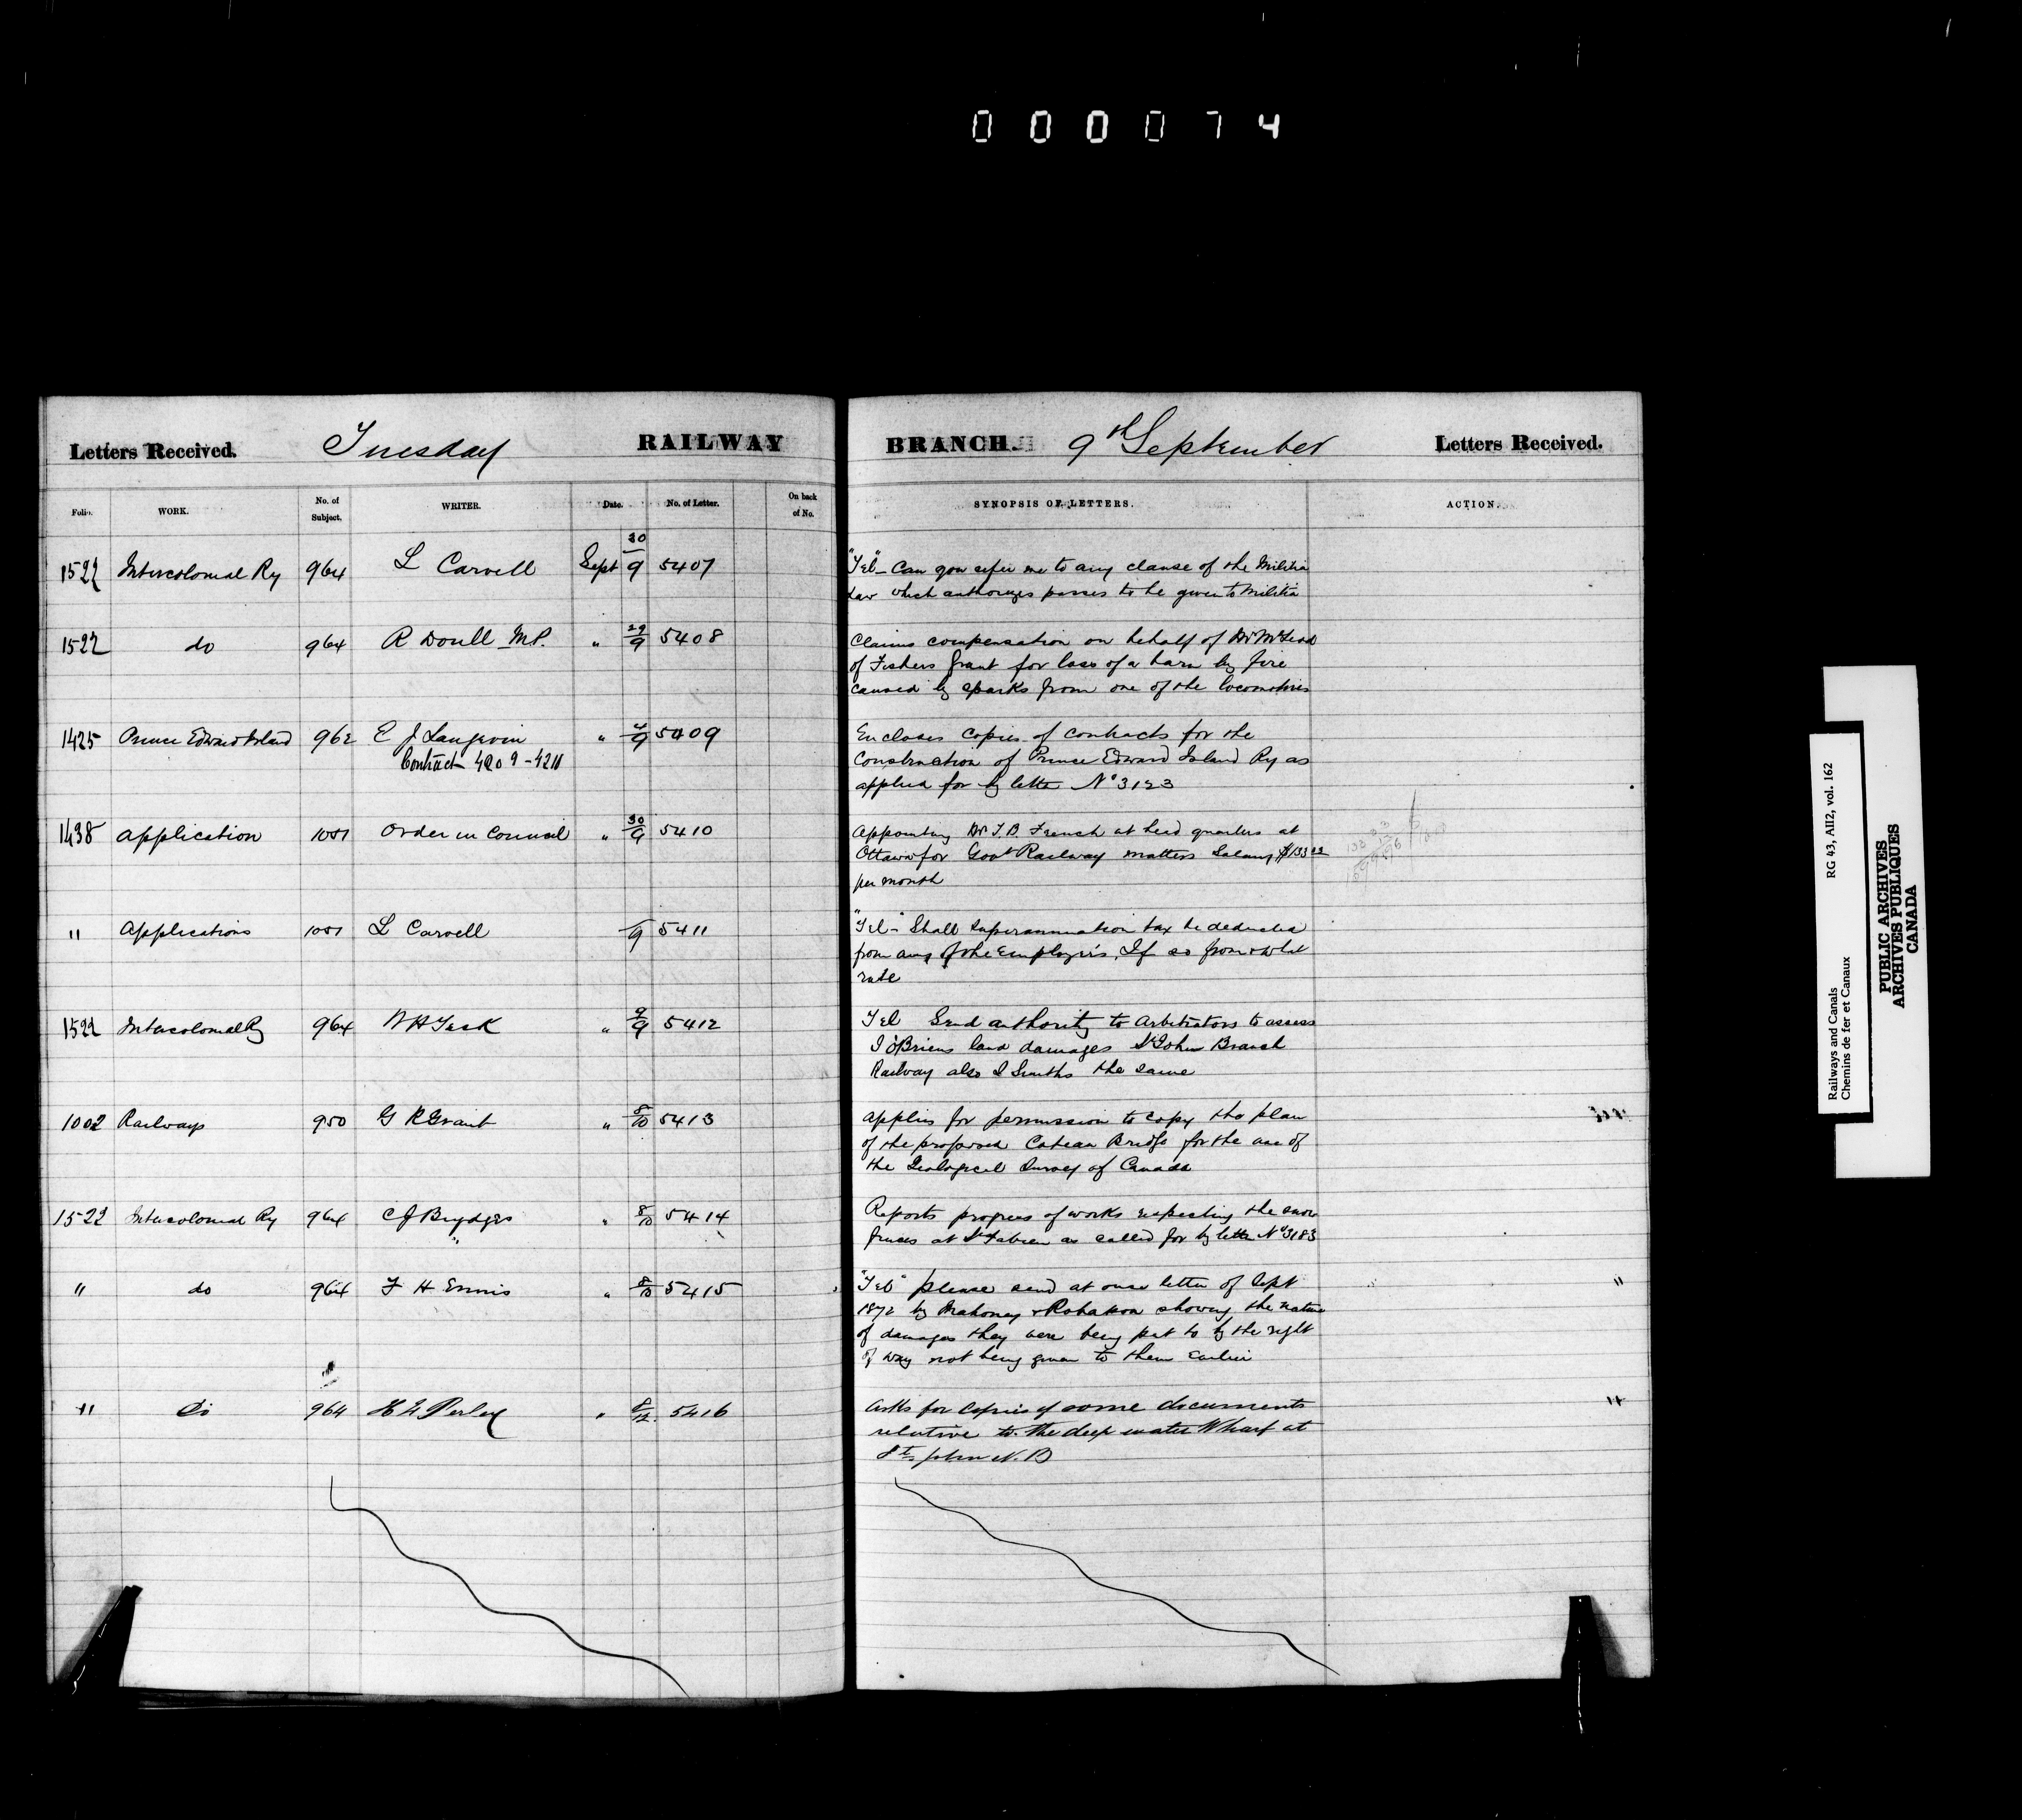 000074
Letters Received. Tuesday RAILWAY BRANCH. 9th September Letters Received.
Folio. WORK. No. of Subject. WRITER. Date. No. of Letter. On back of No. SYNOPSIS OF LETTERS. ACTION.
1522 Intercolonial Ry 964 L Carvell Sept 30/9 5407 "Tel" - Can you refer me to any clause of the Militia
Law which authorizes passes to be given to Militia
1522 do 964 R Doull M.P. " 29/9 5408 Claims compensation on behalf of
of Fishers Grant for loss of a barn by fire
caused by sparks from one of the locomotives
1425 Prince Edward Island 962 E J Langevin " 4/9 5409 Encloses copies of contracts for the
Contract 4209-4211 Construction of Prince Edward Island Ry as
applied for by letter No 3123
1438 Application 1051 Order in Council " 30/9 5410 Appointing Mr T.B. French at head quarters at
Ottawa for Govt Railway matters Salary $133
per month
" Applications 1051 L Carvell /9 5411 "Tel" - Shall superannuation tax be deducted
from any of the Employés. If so from what
rate
1522 Intercolonial Ry 964 " 9/9 5412 Tel Send authority to Arbitrators to assess
O'Briens land damages St John Branch
Railway also Smiths the same
1002 Railways 950 G R Grant " 8/10 5413 applies for permission to copy the plan
of the proposed Coteau Bridge for the use of
the Geological Survey of Canada
1522 Intercolonial Ry 964 C J Brydges " 8/10 5414 Reports progress of works respecting the snow
fences at St Fabien as called for by letter No 3183
" do 964 F H Ennis " 8/10 5415 "Tel" please send at once letter of Sept
1872 by Mahoney & showing the nature
of damages they were being put to by the right
of way not being given to them earlier "
" Do 964 H F Perley " 8/12 5416 asks for copies of some documents
relative to the deep water Wharf at
St John N.B "
Railways and Canals RG 43, AII2, vol. 162
Chemins de fer et Canaux
PUBLIC ARCHIVES
ARCHIVES PUBLIQUES
CANADA